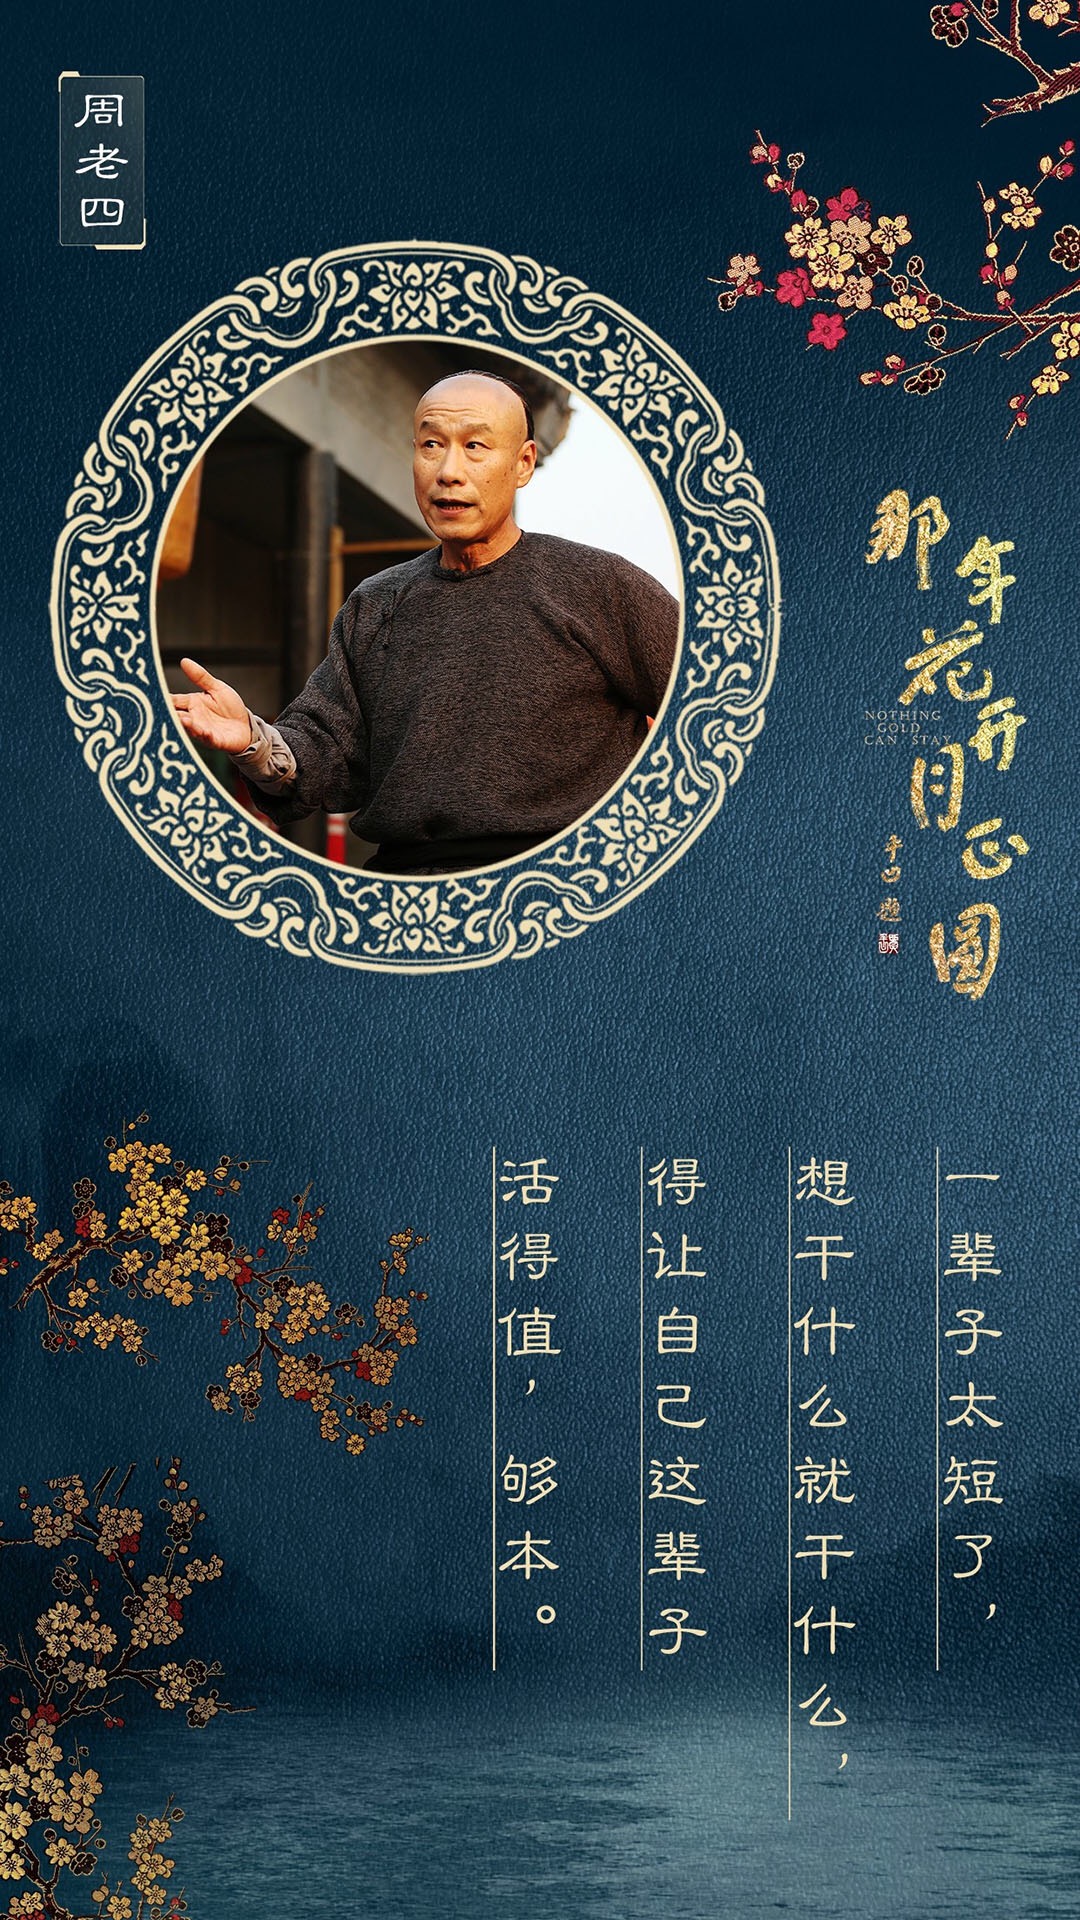 周老四
那年花开月正圆
NOTHING
GOLD
CAN STAY
一辈子太短了，
想干什么就干什么，
得让自己这辈子
活得值，够本。